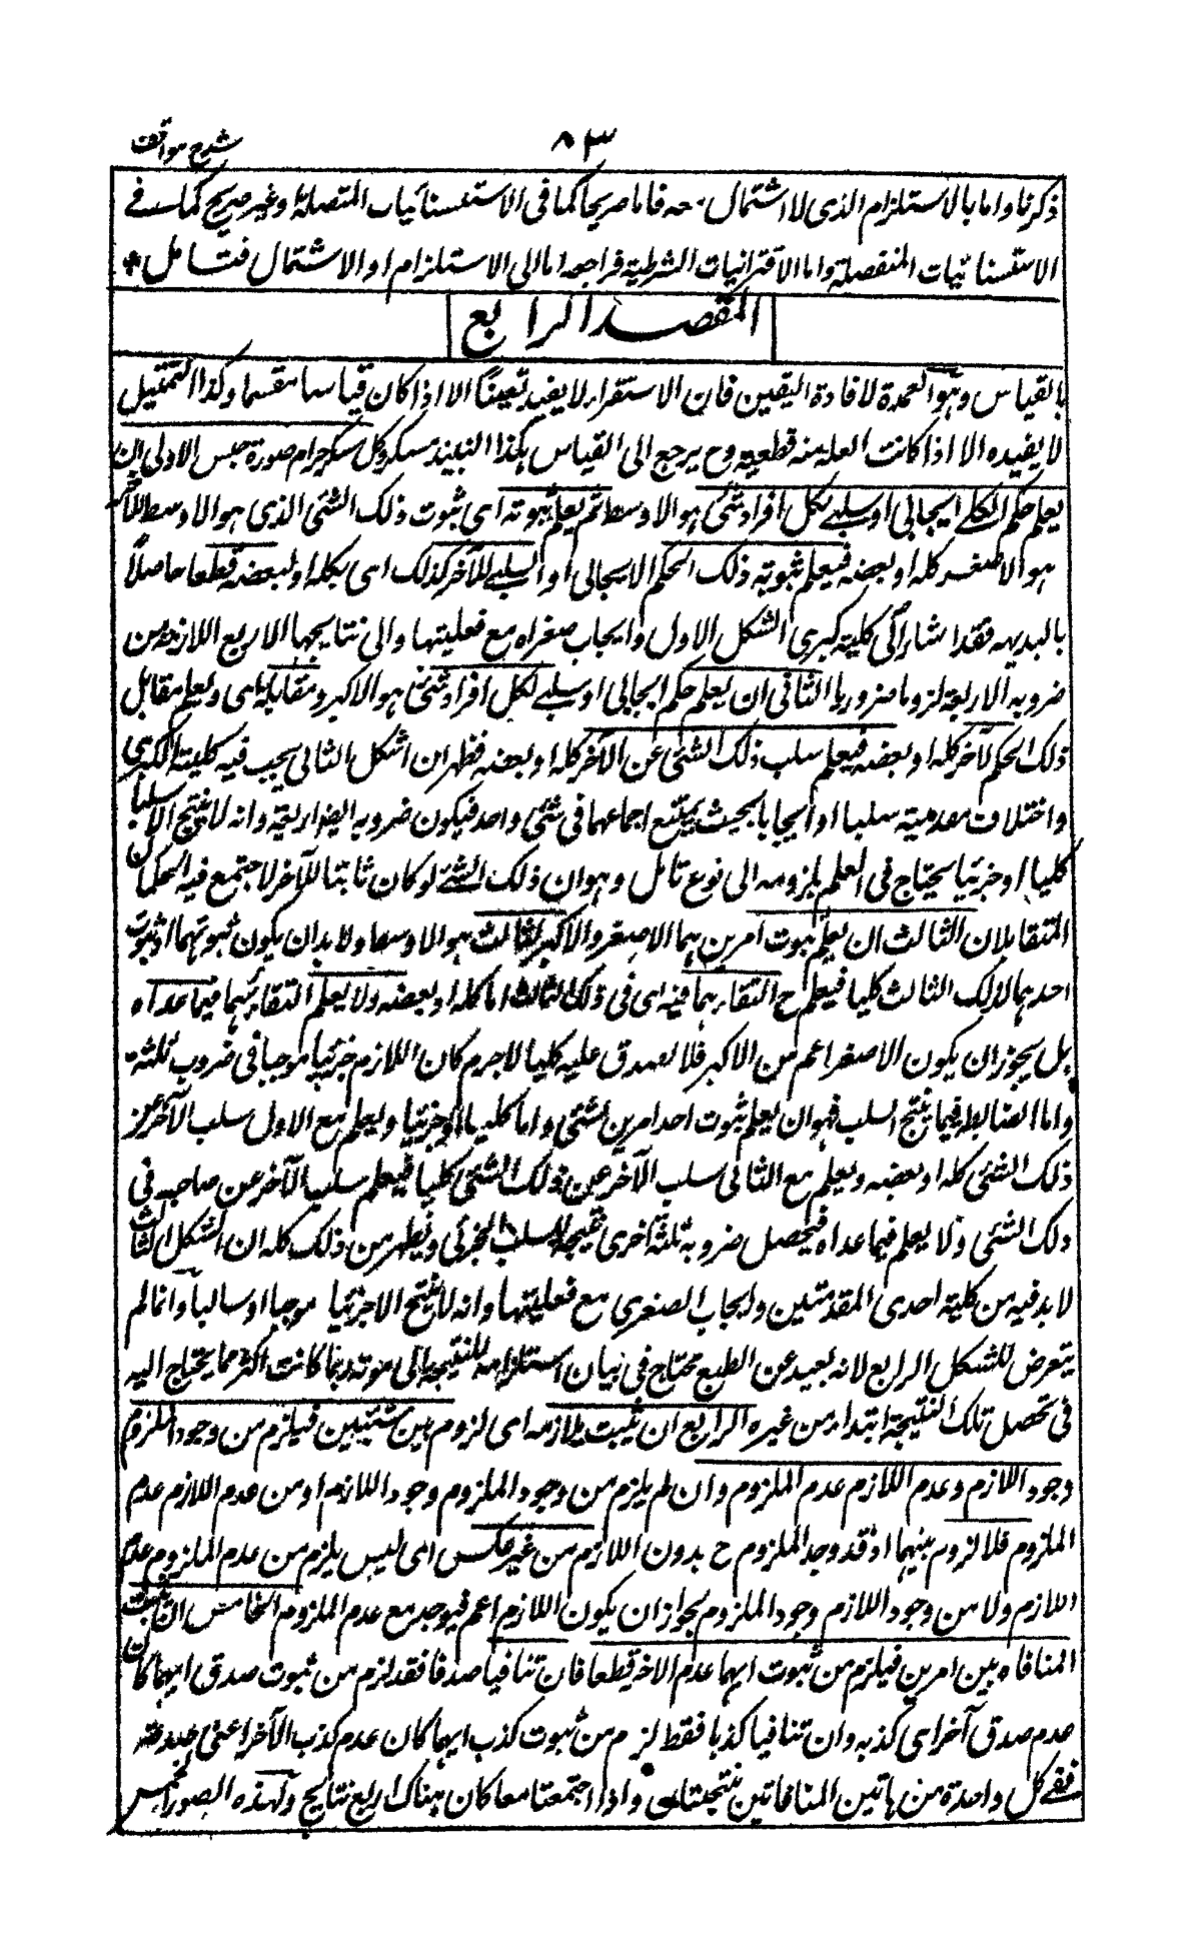 شرح مواقف
٨٣
ذكرنا واما بالاستلزام الذى لا اشتمال معه فاما صريحا كما فى الاستثنائيات المتصلة او غير صريح كما فى
الاستثنائيات المنفصلة واما الاقترانيات الشرطية فراجعة اما الى الاستلزام او الاشتمال فتامل *
المقصد الرابع
بالقياس وهو العمدة لافادة اليقين فان الاستقراء لا يفيد تعينا الا اذا كان قياسا مقسما وكذا التمثيل
لا يفيده الا اذا كانت العلة منه قطعية وح يرجع الى القياس هكذا النبيذ مسكر وكل مسكر حرام صورة خمس الاولى ان
يعلم حكم الكلى ايجابى او سلبى لكل افراد شئ هو الاوسط ثم يعلم ثبوته اى ثبوت ذلك الشئ الذى هو الاوسط للآخر
هو الاصغر كله او بعضه فيعلم ثبوته ذلك الحكم الايجابى او السلبى للآخر كذلك اى بكله او لبعضه قطعا حاصلا
بالبديهه فقد اشار الى كلية كبرى الشكل الاول وايجاب صغراه مع فعليتها والى نتائجها الاربع اللازمة من
ضروبه الاربعة لزوما ضروريا الثانى ان يعلم حكم ايجابى او سلبى لكل افراد شئ هو الاكبر ومقابله اى ويعلم مقابل
ذلك الحكم لآخر كله او بعضه فيعلم سلب ذلك الشئ عن الآخر كله او بعضه فظهر ان اشكل الثانى يجب فيه كلية الكبرى
واختلاف مقدميته سلبا او ايجابا بحيث يمتنع اجماعهما فى شئ واحد فيكون ضروبه ايضا اربعة وانه لا ينتج الا سلبا
كليا او جزئيا يحتاج فى العلم بلزومه الى نوع تامل وهو ان ذلك الشئ لو كان ثابتا للآخر لاجتمع فيه الحكمان
المتقابلان الثالث ان يعلم ثبوت امرين هما الاصغر والاكبر لثالث هو الاوسط ولا بد ان يكون ثبوتهما او ثبوت
احدهما لذلك الثالث كليا فيعلم ح التقاءهما فيه اى فى ذلك الثالث اما كله او بعضه ولا يعلم التقائهما فيما عداه
بل يجوز ان يكون الاصغر اعم من الاكبر فلا يصدق عليه كليا لا جرم كان اللازم جزئيا موجبا فى ضروب ثلثة
واما الضابط فيما ينتج السلب فهو ان يعلم ثبوت احد امرين لشئ واما كليا او جزئيا ويعلم مع الاول سلب الآخر عن
ذلك الشئ كله او بعضه ويعلم مع الثانى سلب الآخر عن ذلك الشئ كليا فيعلم سلب الآخر عن صاحبه فى
ذلك الشئ ولا يعلم فيما عداه فيحصل ضروبه ثلثة اخرى نتيجة للسلب الجزئى ويظهر من ذلك كله ان الشكل الثالث
لا بد فيه من كلية احدى المقدمتين وايجاب الصغرى مع فعليتها وانه لا ينتج الا جزئيا موجبا او سالبا وانما لم
يتعرض للشكل الرابع لانه بعيد عن الطبع محتاج فى بيان استلزامه للنتيجة الى مؤنة ربما كانت اكثر مما يحتاج اليه
فى تحصل تلك النتيجة ابتداء من غيره الرابع ان تثبت ملازمة اى لزوم بين شيئين فيلزم من وجود الملزوم
وجود اللازم وعدم اللازم عدم الملزوم وان لم يلزم من وجود الملزوم وجود اللازم او من عدم اللازم عدم
الملزوم فلا لزوم بينهما اذ قد وجد الملزوم ح بدون اللازم من غير عكس اى ليس يلزم من عدم الملزوم عدم
اللازم ولا من وجود اللازم وجود الملزوم لجواز ان يكون اللازم اعم فيوجد مع عدم الملزوم الخامس ان تثبت
المنافاه بين امرين فيلزم من ثبوت ايهما عدم الاخر قطعا فان تنافيا صدقا فقد لزم من ثبوت صدق ايهما كان
عدم صدق آخر اى كذبه وان تنافيا كذبا فقط لزم من ثبوت كذب ايهما كان عدم كذب الآخر اعنى صدقه
ففى كل واحدة من هاتين المنافاتين نتيجتان واذا اجتمعتا معا كان هناك اربع نتايج ولهذه الصور الخمس